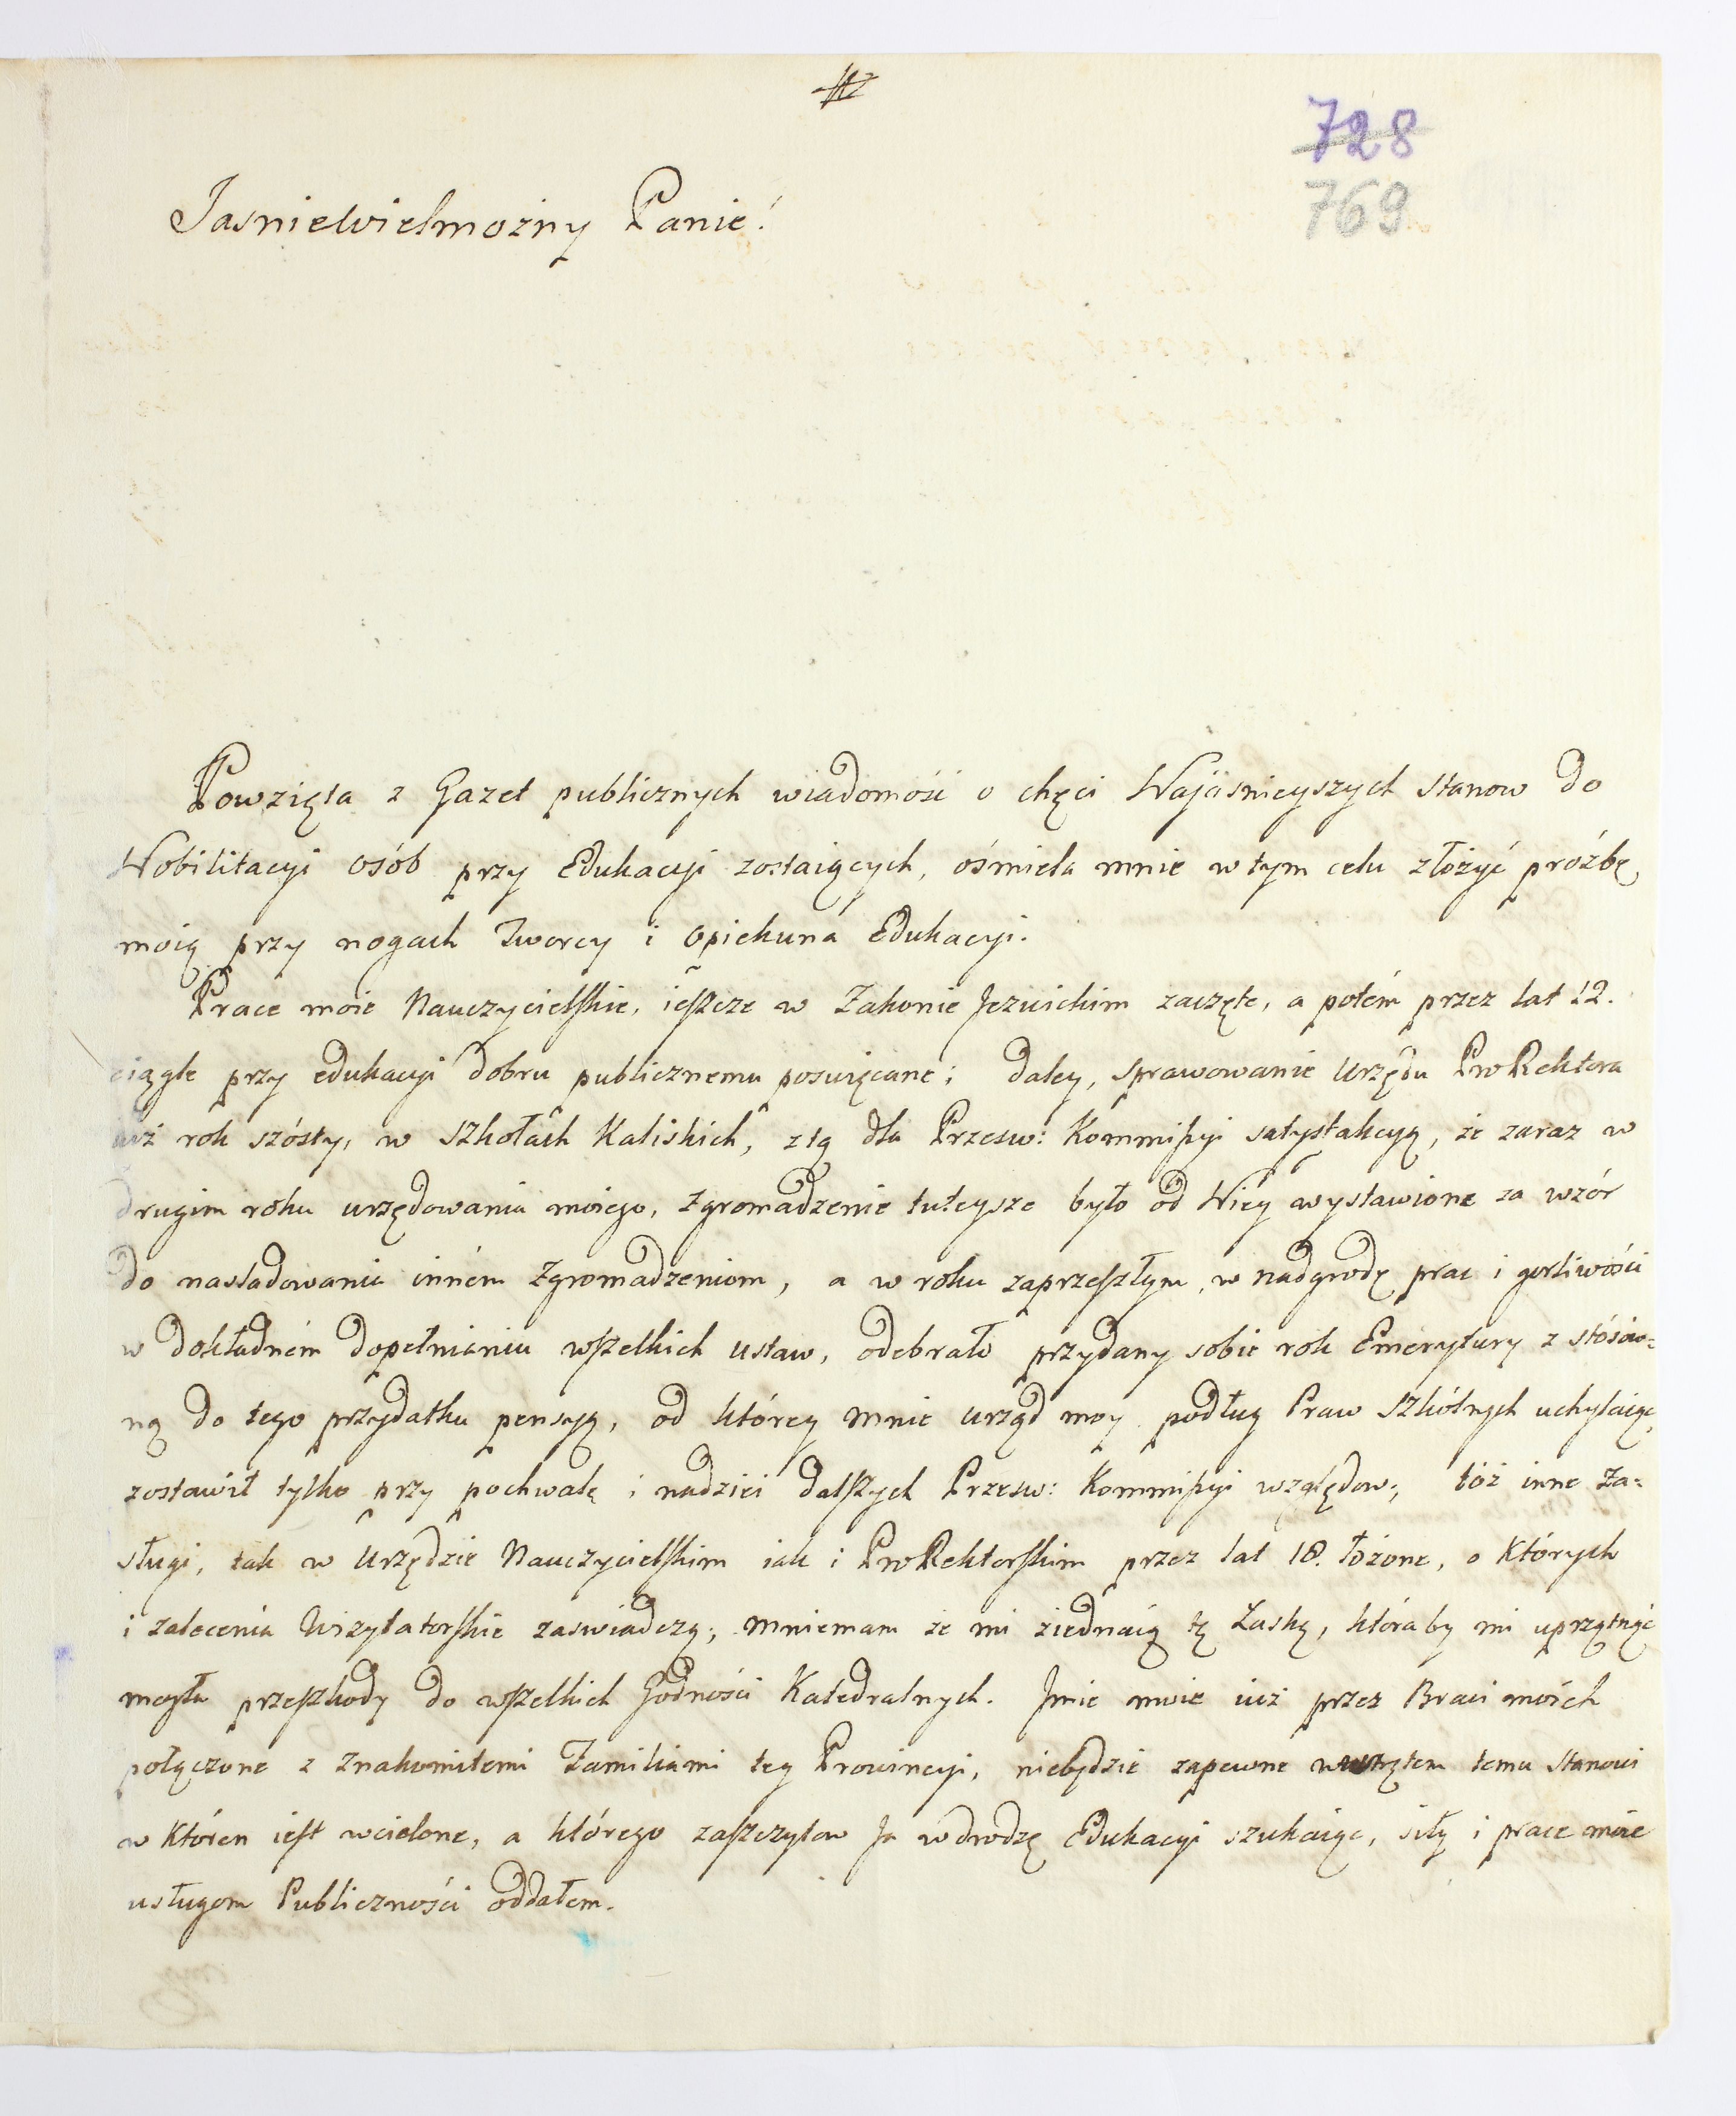 728
769
Jasnie Wielmożny Panie!
Powzięta z Gazet publicznych wiadomość o chęci Najiasnieyszych Stanow do
Nobilitacyi osób przy Edukacyi zostaiących, ośmiela mnie w tym celu złożyć próźbę
moią przy nogach Tworcy i Opiekuna Edukacyi.
Prace moie Nauczycielskie, ieszcze w Zakonie Jezuickim zaczęte, a potém przez lat 12.
ciągle przy edukacyi dobru publicznemu poswięcane; daley, sprawowanie Urzędu ProRektora
iuż rok szósty, w Szkołach Kaliskich, z tą dla Przesw: Kommissyi satysfakcyą, że zaraz w
drugim roku urzędowania moiego, Zgromadzenie tuteysze było od Niey wystawione za wzór
do nasladowania inném Zgromadzeniom, a w roku zaprzeszłym, w nadgrodę prac i gorliwości
w dokładném dopełnianiu wszelkich ustaw, odebrało przydany sobie rok Emerytury z stósow=
ną do tego przydatku pensyą, od którey mnie urząd moy podług Praw Szkólnych uchylaiąc,
zostawił tylko przy pochwałę i nadziei dalszych Przesw: Kommissyi względow; tóż inne Za=
sługi, tak w Urzędzie Nauczycielskim iak i ProRektorskim przez lat 18. łożone, o których
i zalecenia Wizytatorskie zaswiadczą; mniemam że mi ziednaią tę Łaskę, któraby mi uprzątnąć
mogła przeszkody do wszelkich Godności Katedralnych. Jmie moie iuż przez Braci moich
połączone z znakomitemi Familiami tey Prowincyi, niebędzie zapewne wstrętem temu Stanowi
w któren iest wcielone, a którego zaszczytow Ja w drodzę Edukacyi szukaiąc, siły i prace moie
usługom Publiczności oddałem.